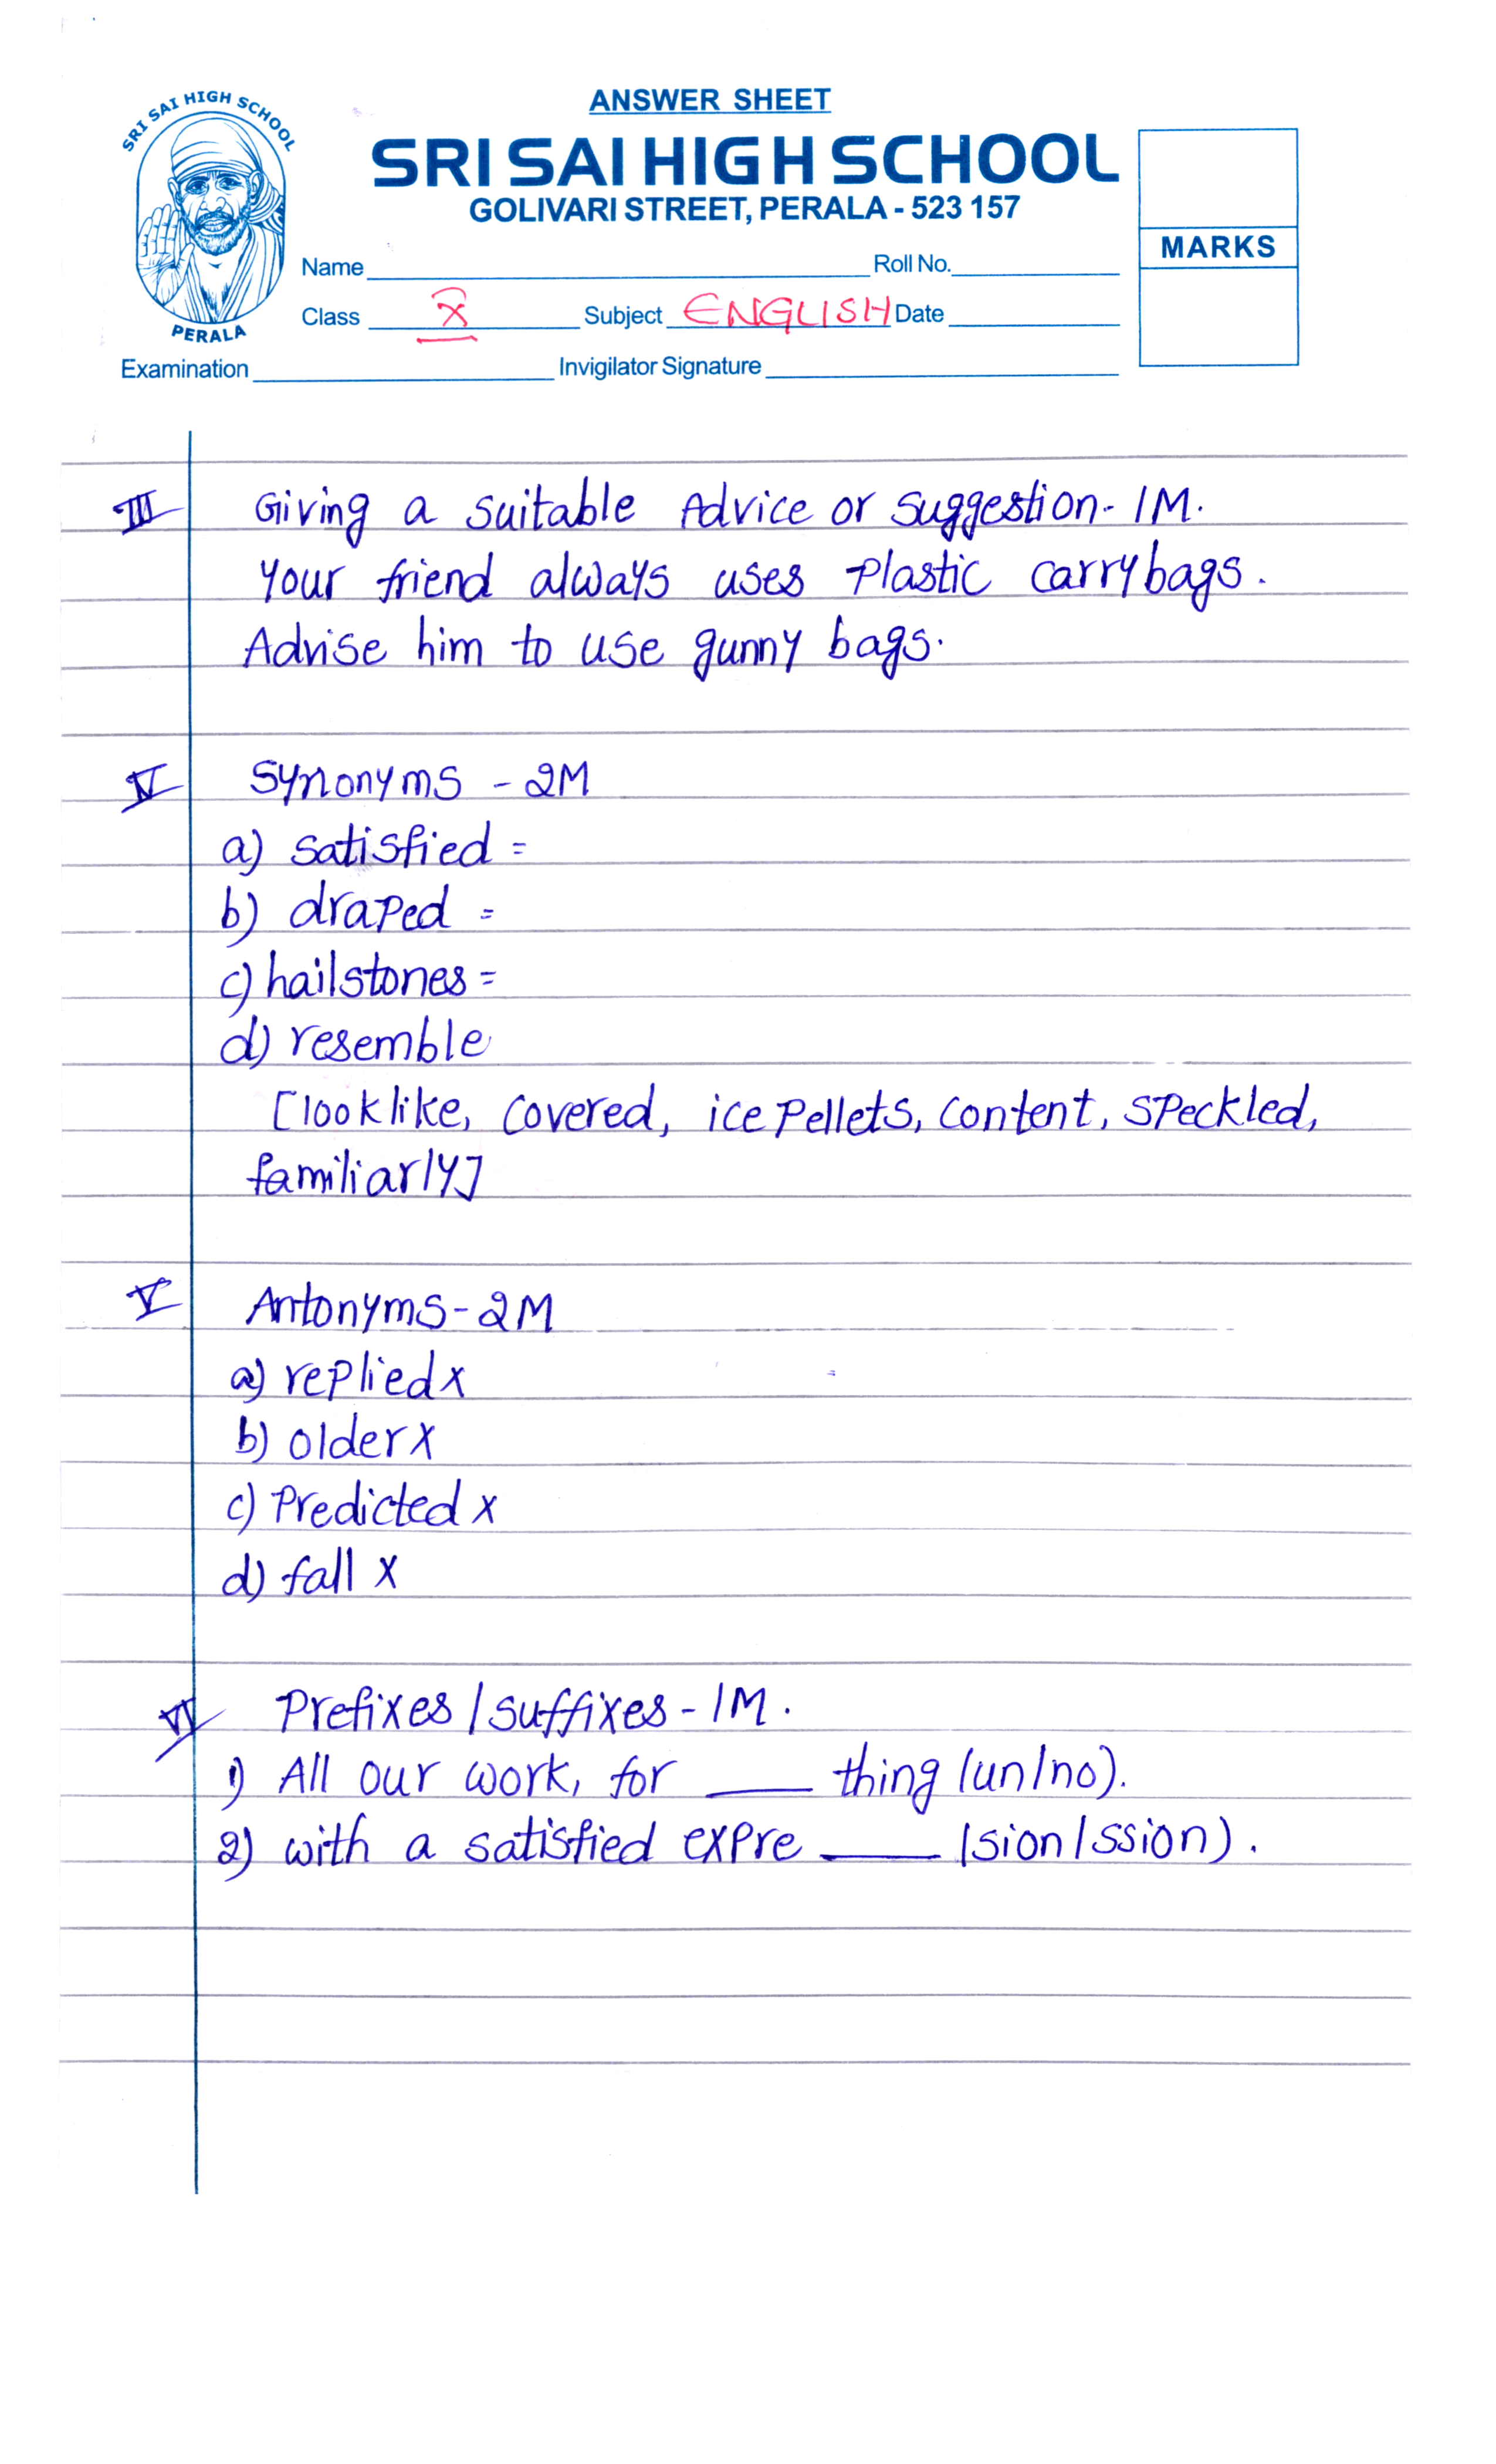 SRI SAI HIGH SCHOOL
PERALA
ANSWER SHEET
SRI SAI HIGH SCHOOL
GOLIVARI STREET, PERALA - 523 157
MARKS
Name Roll No.
Class X Subject ENGLISH Date
Examination Invigilator Signature
III Giving a suitable Advice or suggestion - 1M.
Your friend always uses Plastic carrybags.
Advise him to use gunny bags.
IV Synonyms - 2M
a) satisfied =
b) draped =
c) hailstones =
d) resemble
[look like, covered, ice Pellets, content, speckled,
familiarly]
V Antonyms - 2M
a) replied x
b) older x
c) Predicted x
d) fall x
VI Prefixes / suffixes - 1M.
1) All our work, for ___ thing (un/no).
2) with a satisfied expre ___ (sion/ssion).